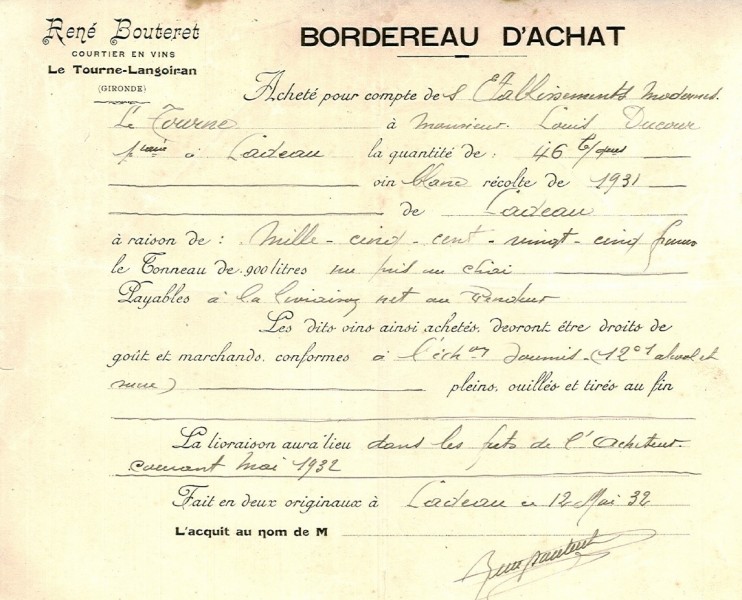 René Bouteret
COURTIER EN VINS
Le Tourne-Langoiran
(GIRONDE)
BORDEREAU D'ACHAT
Acheté pour compte de s Etablissements Modernes.
Le Tourne à Monsieur Louis Ducour
à Ladeau la quantité de : 46
vin blanc récolte de 1931
de Ladeau
à raison de : Mille - cinq - cent - vingt - cinq francs
le Tonneau de 900 litres nu pris au chai
Payables à la livraison net au Vendeur
Les dits vins ainsi achetés, devront être droits de
goût et marchands, conformes à l'échon soumis (12°1 alcool et
pleins, ouillés et tirés au fin
La livraison aura lieu dans les futs de l'Acheteur
courant Mai 1932
Fait en deux originaux à Ladeau le 12 Mai 32
L'acquit au nom de M